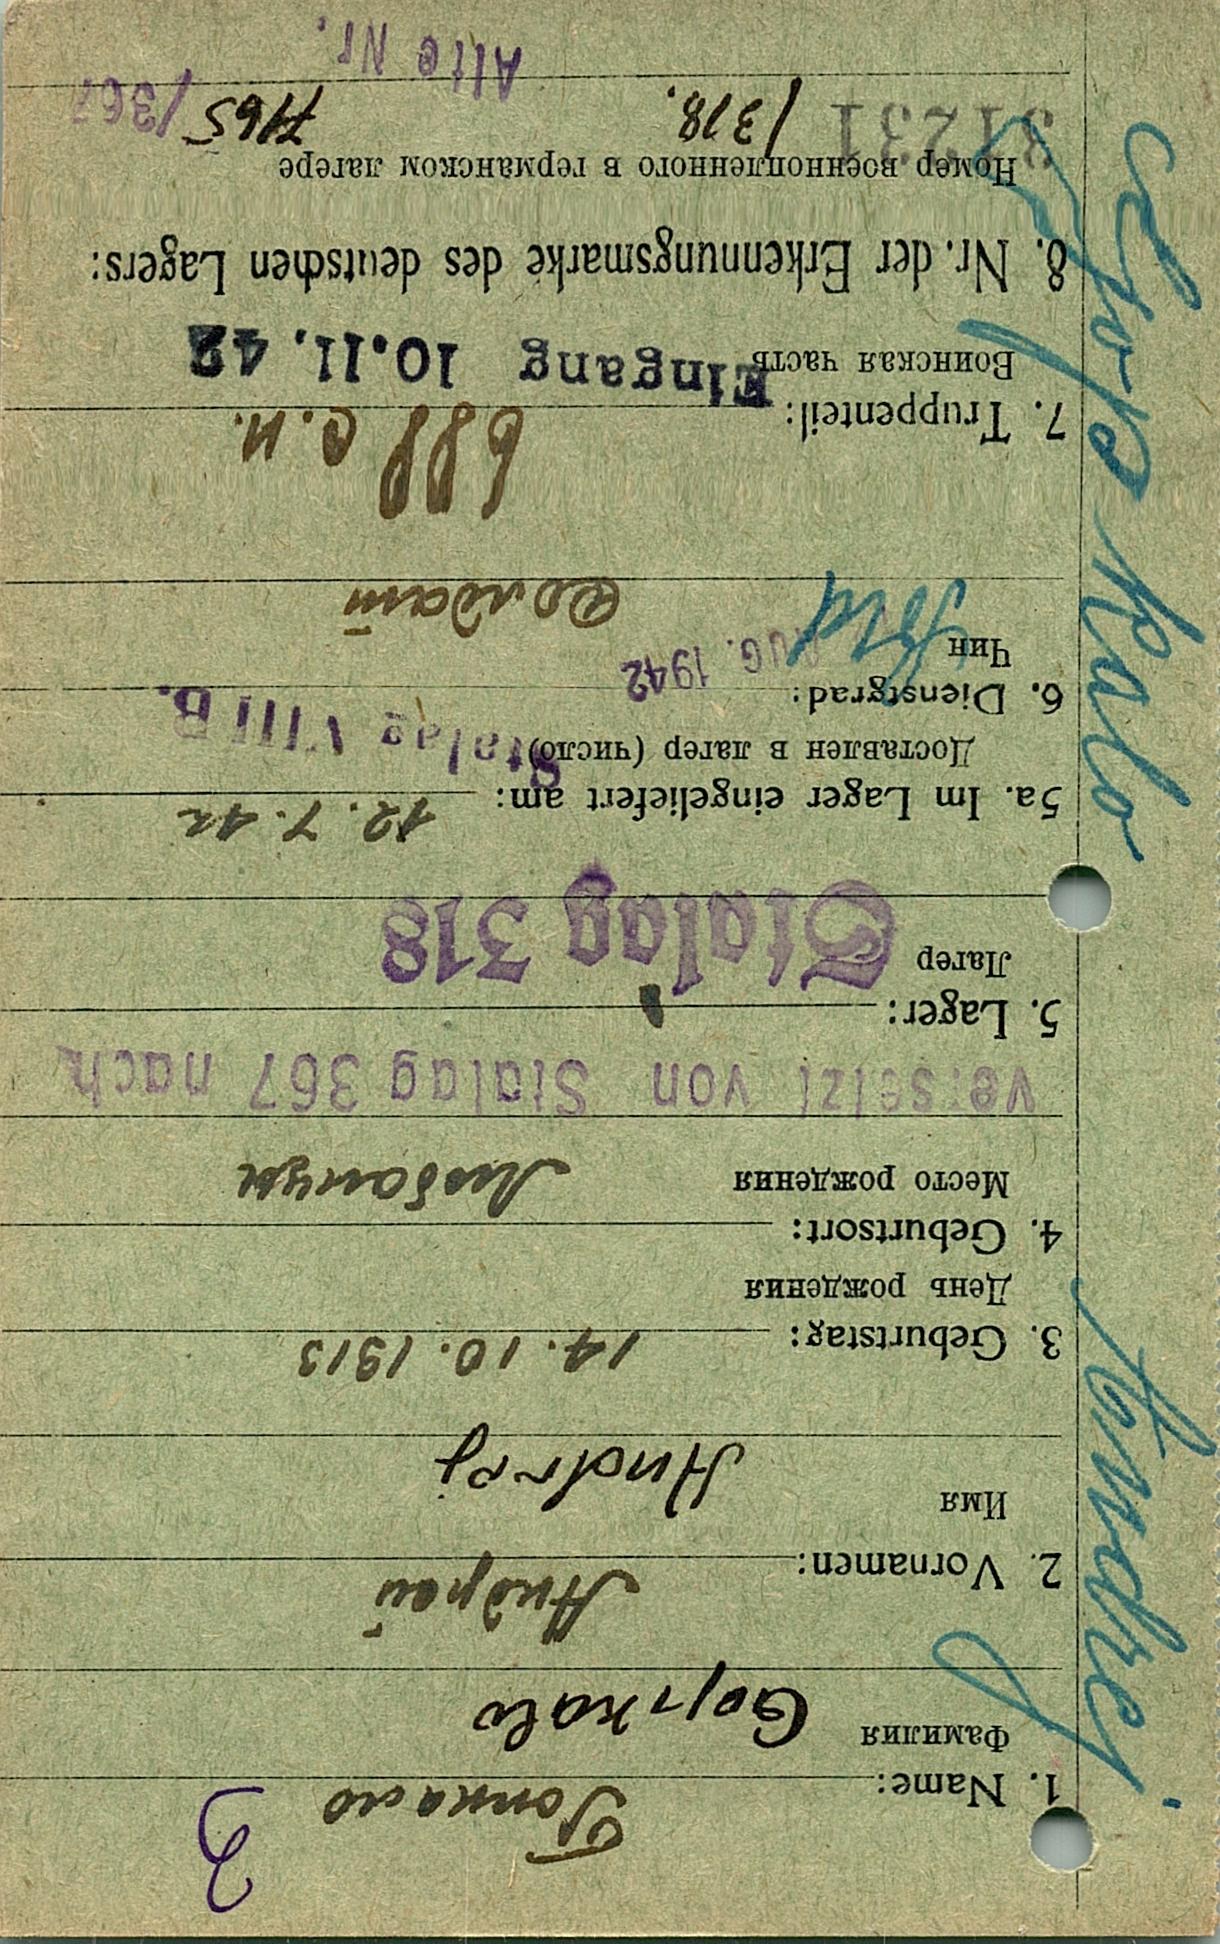 З
1. Name: Гопкало
Фамилия Gopkalo
2. Vornamen: Андрей
Имя Andrej
3. Geburtstag: 14. 10. 1913
День рождения
4. Geburtsort:
Место рождения
versetzt von Stalag 367 nach
5. Lager:
Лагер Stalag 318
5a. Im Lager eingeliefert am: 12. 7. 42
Доставлен в лагер (число) Stalag VIII B.
6. Dienstgrad: AUG. 1942
Чин Sold
солдат
7. Truppenteil: 688 с. п.
Воинская часть Eingang 10. 11. 42
8. Nr. der Erkennungsmarke des deutschen Lagers:
Номер военнопленного в германском лагере
31231 /318. 7165 /367
Alte Nr.
Andrej Gopkalo